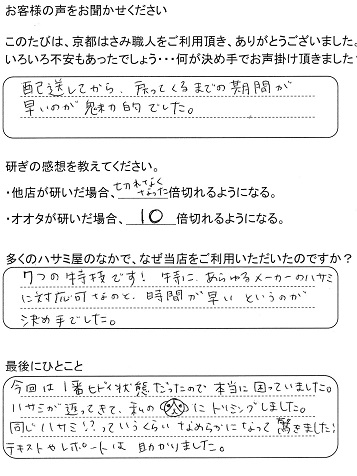 お客様の声をお聞かせください
このたびは、京都はさみ職人をご利用頂き、ありがとうございました。
いろいろ不安もあったでしょう・・・何が決め手でお声掛け頂きました
配送してから、戻ってくるまでの期間が
早いのが魅力的でした。
研ぎの感想を教えてください。
・他店が研いだ場合、切れなくなった倍切れるようになる。
・オオタが研いだ場合、10倍切れるようになる。
多くのハサミ屋のなかで、なぜ当店をご利用いただいたのですか?
7つの特技です! 特に、あらゆるメーカーのハサミ
に対応可なのと、時間が早いというのが
決め手でした。
最後にひとこと
今回は1番ヒドイ状態だったので本当に困っていました。
ハサミが返ってきて、私の犬にトリミングしました。
同じハサミ!?っていうくらいなめらかになって驚きました!
テキストやレポートは助かりました。